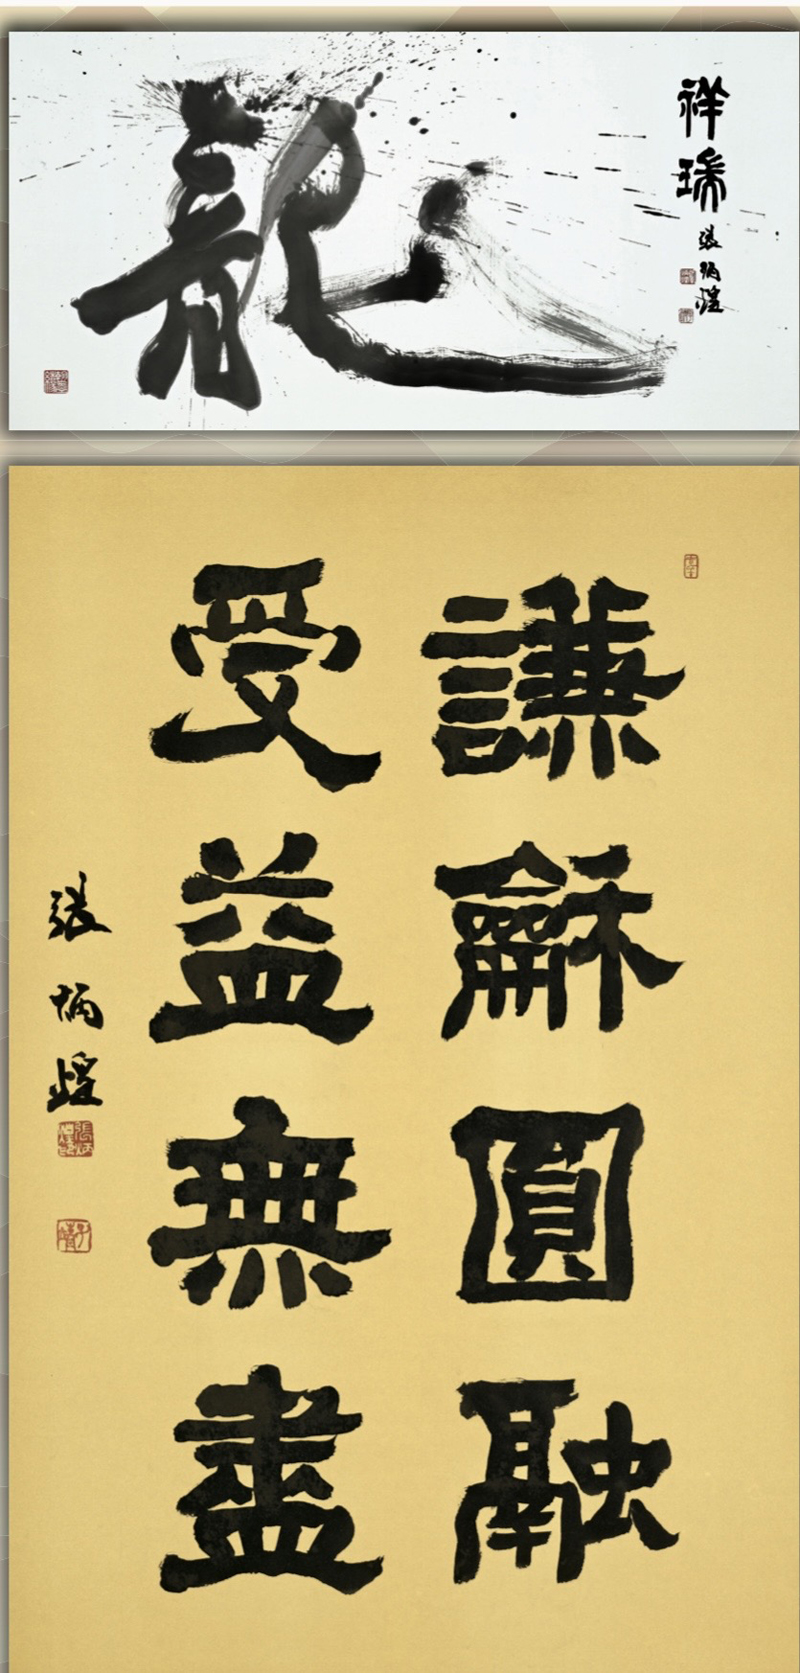 龍
祥瑞
張炳煌
謙龢圓融
受益無盡
張炳煌